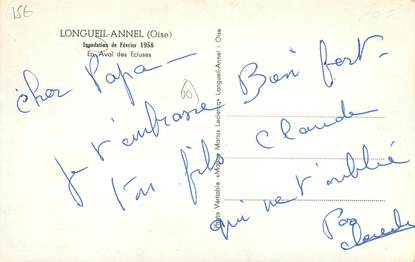 15E
LONGUEIL-ANNEL (Oise)
Inondation de Février 1958
En Aval des Ecluses
cher Papa -
je t'embrasse Bien fort -
Ton fils Claude
qui ne t'oublie
Pas
Claude
Photo Véritable - Marius Leclercq - Longueil-Annel - Oise